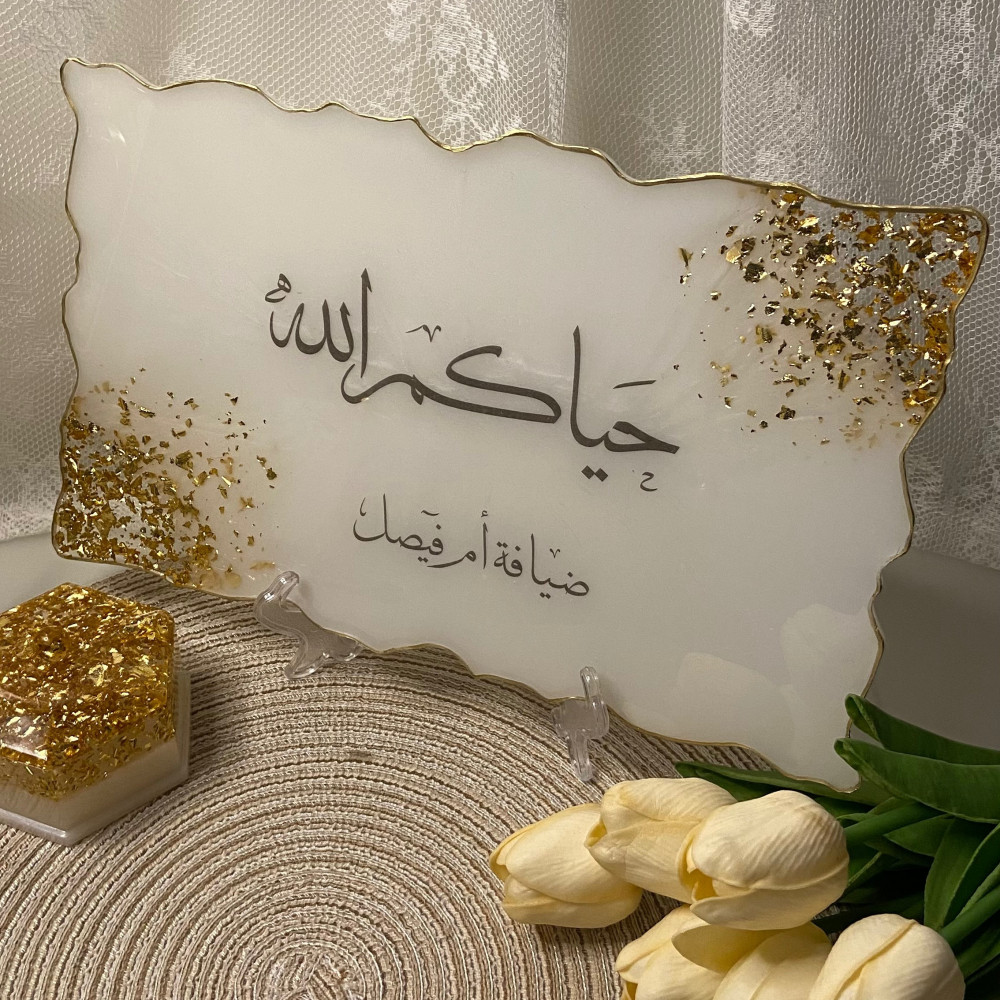 حياكم الله
ضيافة أم فيصل